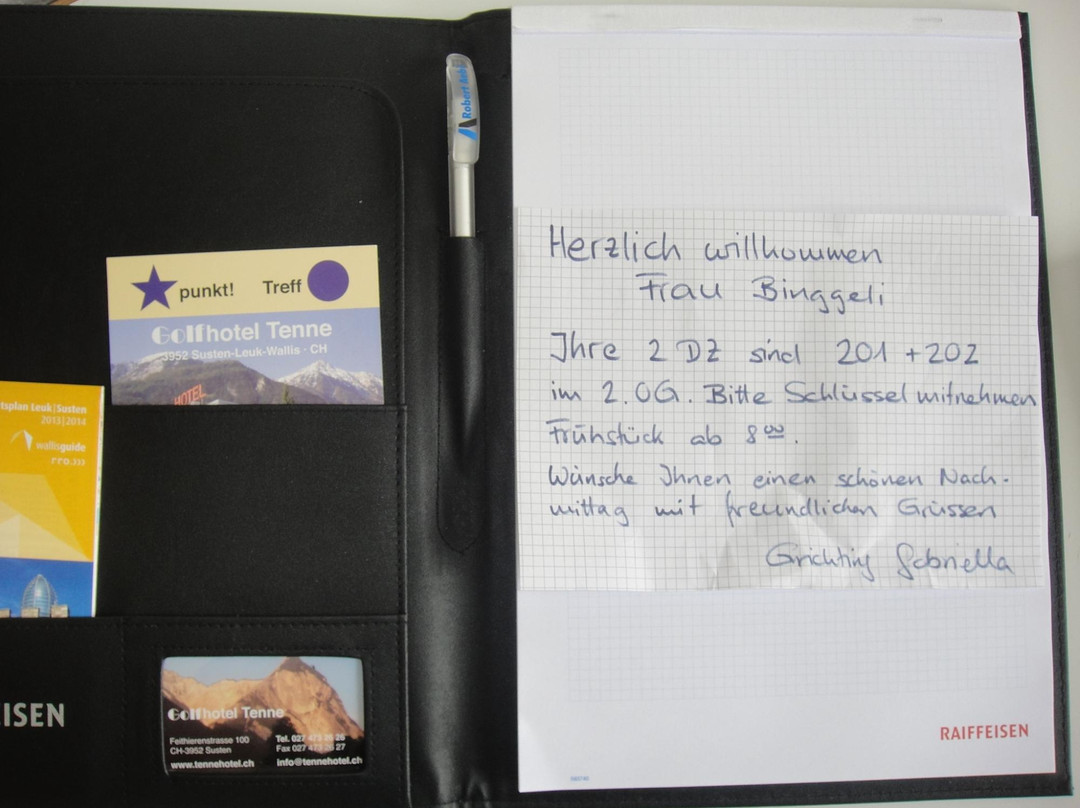 Robert
punkt! Treff
Golfhotel Tenne
3952 Susten-Leuk-Wallis · CH
HOTEL
tsplan Leuk|Susten
2013|2014
wallisguide
rro.›››
EISEN
Golfhotel Tenne
Feithierenstrasse 100
CH-3952 Susten
www.tennehotel.ch
Tel. 027 473
Fax 027 473 26 27
info@tennehotel.ch
Herzlich willkommen
Frau Binggeli
Ihre 2 DZ sind 201 + 202
im 2. OG. Bitte Schlüssel mitnehmen
Frühstück ab 8 00.
Wünsche Ihnen einen schönen Nach-
mittag mit freundlichen Grüssen
Grichting Gabriella
RAIFFEISEN